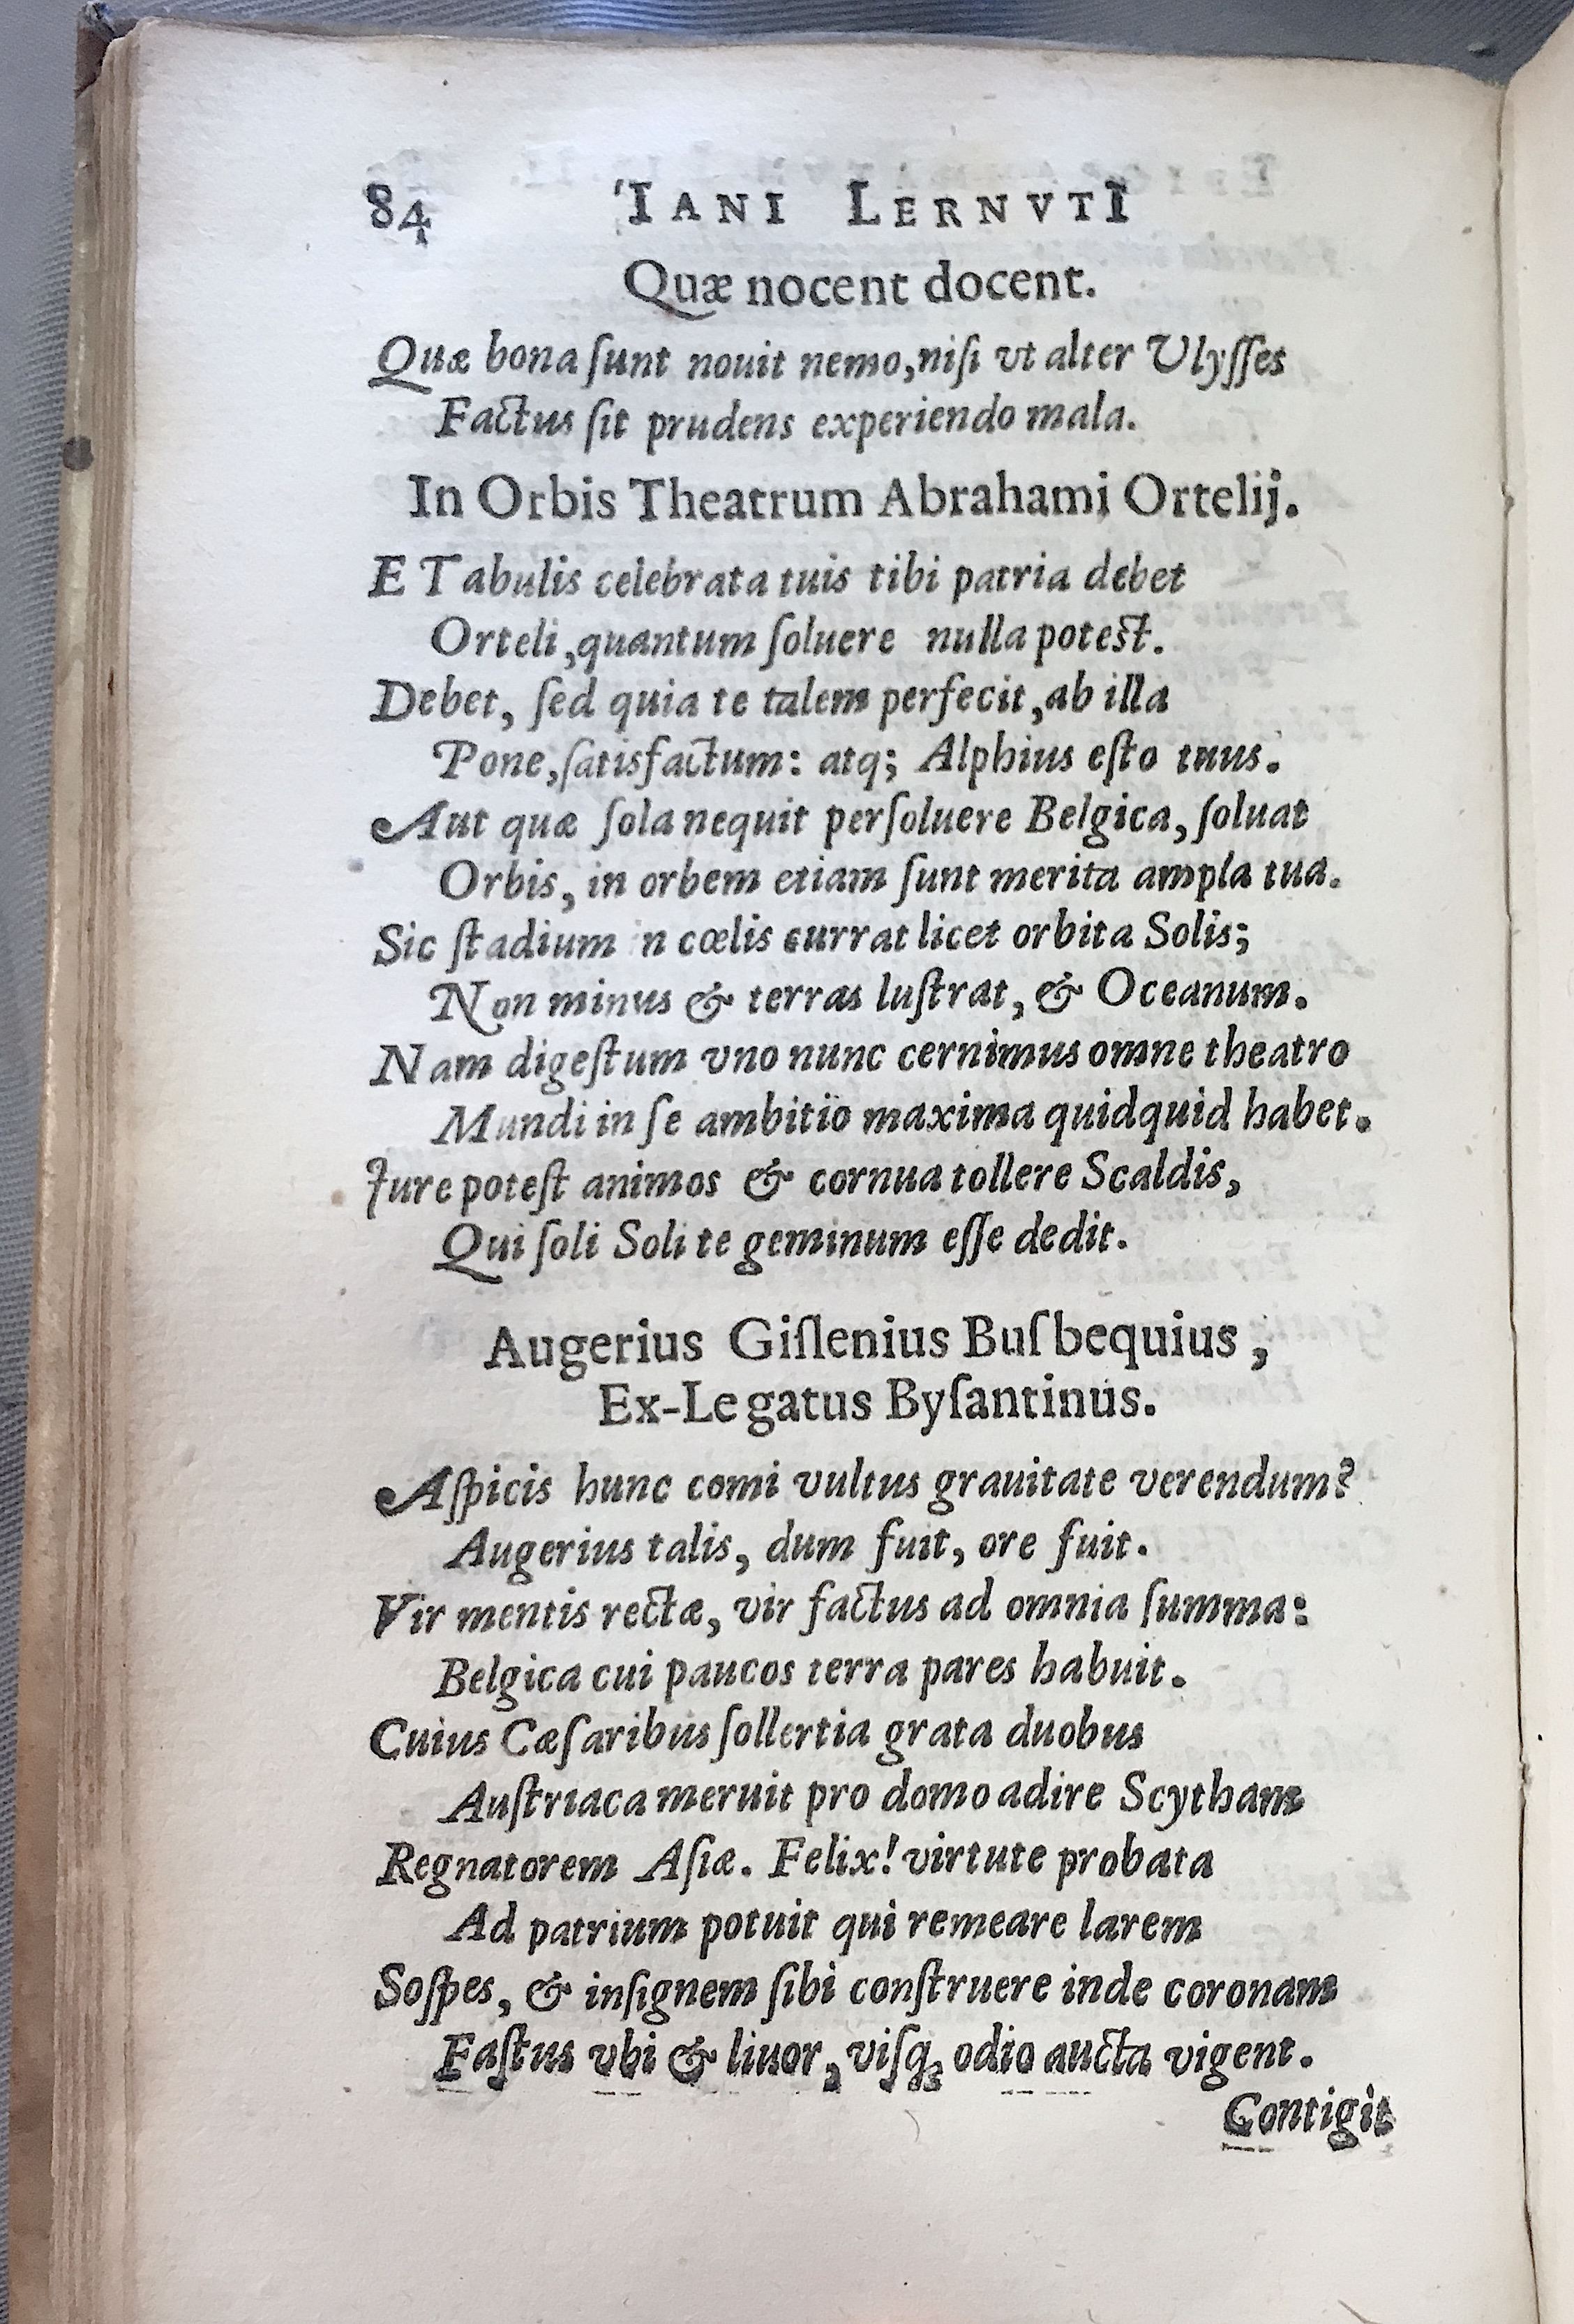 84 IANI LERNVTI
Quæ nocent docent.
Quæ bona ſunt nouit nemo, niſi vt alter Ulyſſes
Factus ſit prudens experiendo mala.
In Orbis Theatrum Abrahami Ortelij.
E Tabulis celebrata tuis tibi patria debet
Orteli, quantum ſoluere nulla poteſt.
Debet, ſed quia te talem perfecit, ab illa
Pone, ſatisfactum: atq; Alphius eſto tuus.
Aut quæ ſola nequit perſoluere Belgica, ſoluat
Orbis, in orbem etiam ſunt merita ampla tua.
Sic ſtadium n cœlis currat licet orbita Solis;
Non minus & terras luſtrat, & Oceanum.
Nam digeſtum vno nunc cernimus omne theatro
Mundi in ſe ambitio maxima quidquid habet.
Jure poteſt animos & cornua tollere Scaldis,
Qui ſoli Soli te geminum eſſe dedit.
Augerius Giſlenius Buſbequius,
Ex-Legatus Byſantinus.
Aſpicis hunc comi vultus grauitate verendum?
Augerius talis, dum fuit, ore fuit.
Vir mentis rectæ, vir factus ad omnia ſumma:
Belgica cui paucos terra pares habuit.
Cuius Cæſaribus ſollertia grata duobus
Auſtriaca meruit pro domo adire Scytham
Regnatorem Aſiæ. Felix! virtute probata
Ad patrium potuit qui remeare larem
Soſpes, & inſignem ſibi conſtruere inde coronam
Faſtus vbi & liuor, viſq; odio aucta vigent.
Contigit